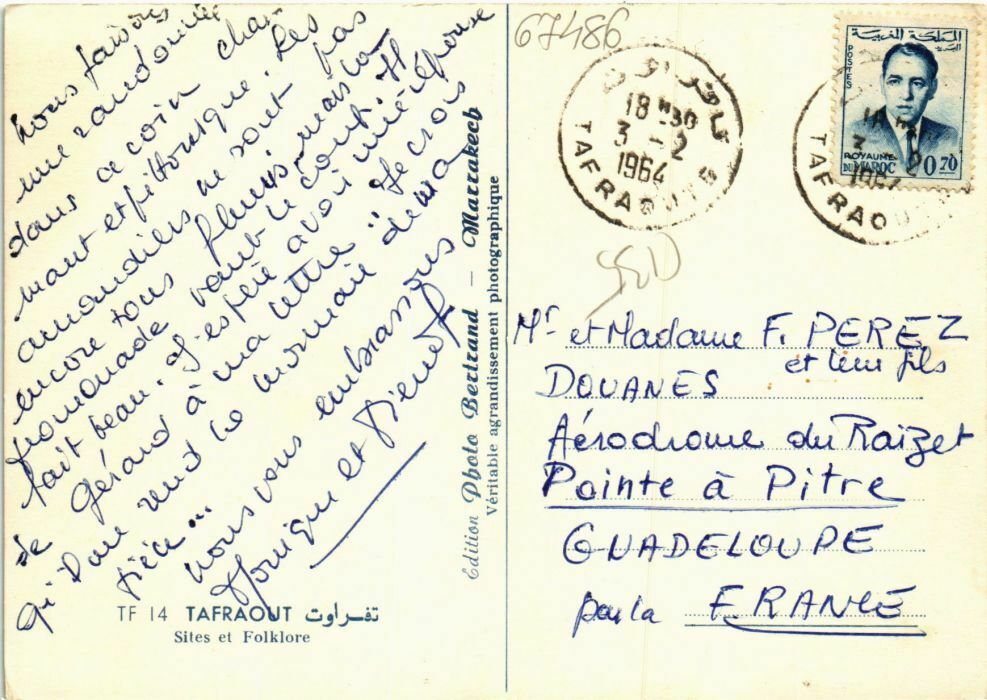 nous faisons
une randonnée
dans ce coin char
mant et pittoresque. Les
amandiers ne sont pas
encore tous fleuris mais la
promenade vaut le coup. Il
fait beau. J'espère avoir une réponse
de Gérard à ma lettre. Je crois
qu'Dom vend la
pièce...
nous vous embrassons
Monique et
TF 14 TAFRAOUT تفراوت
Sites et Folklore
Edition Photo Bertrand - Marrakech
Véritable agrandissement photographique
67486
تافراوت
18 H30
3 - 2
1964
TAFRAOUT
المملكة المغربية
البريد
POSTES
ROYAUME
DU MAROC
0,70
18
3
TAFRAOU
Mr et Madame F. PEREZ
et leur fils
DOUANES
Aérodrome du Raizet
Pointe à Pitre
GUADELOUPE
par la FRANCE